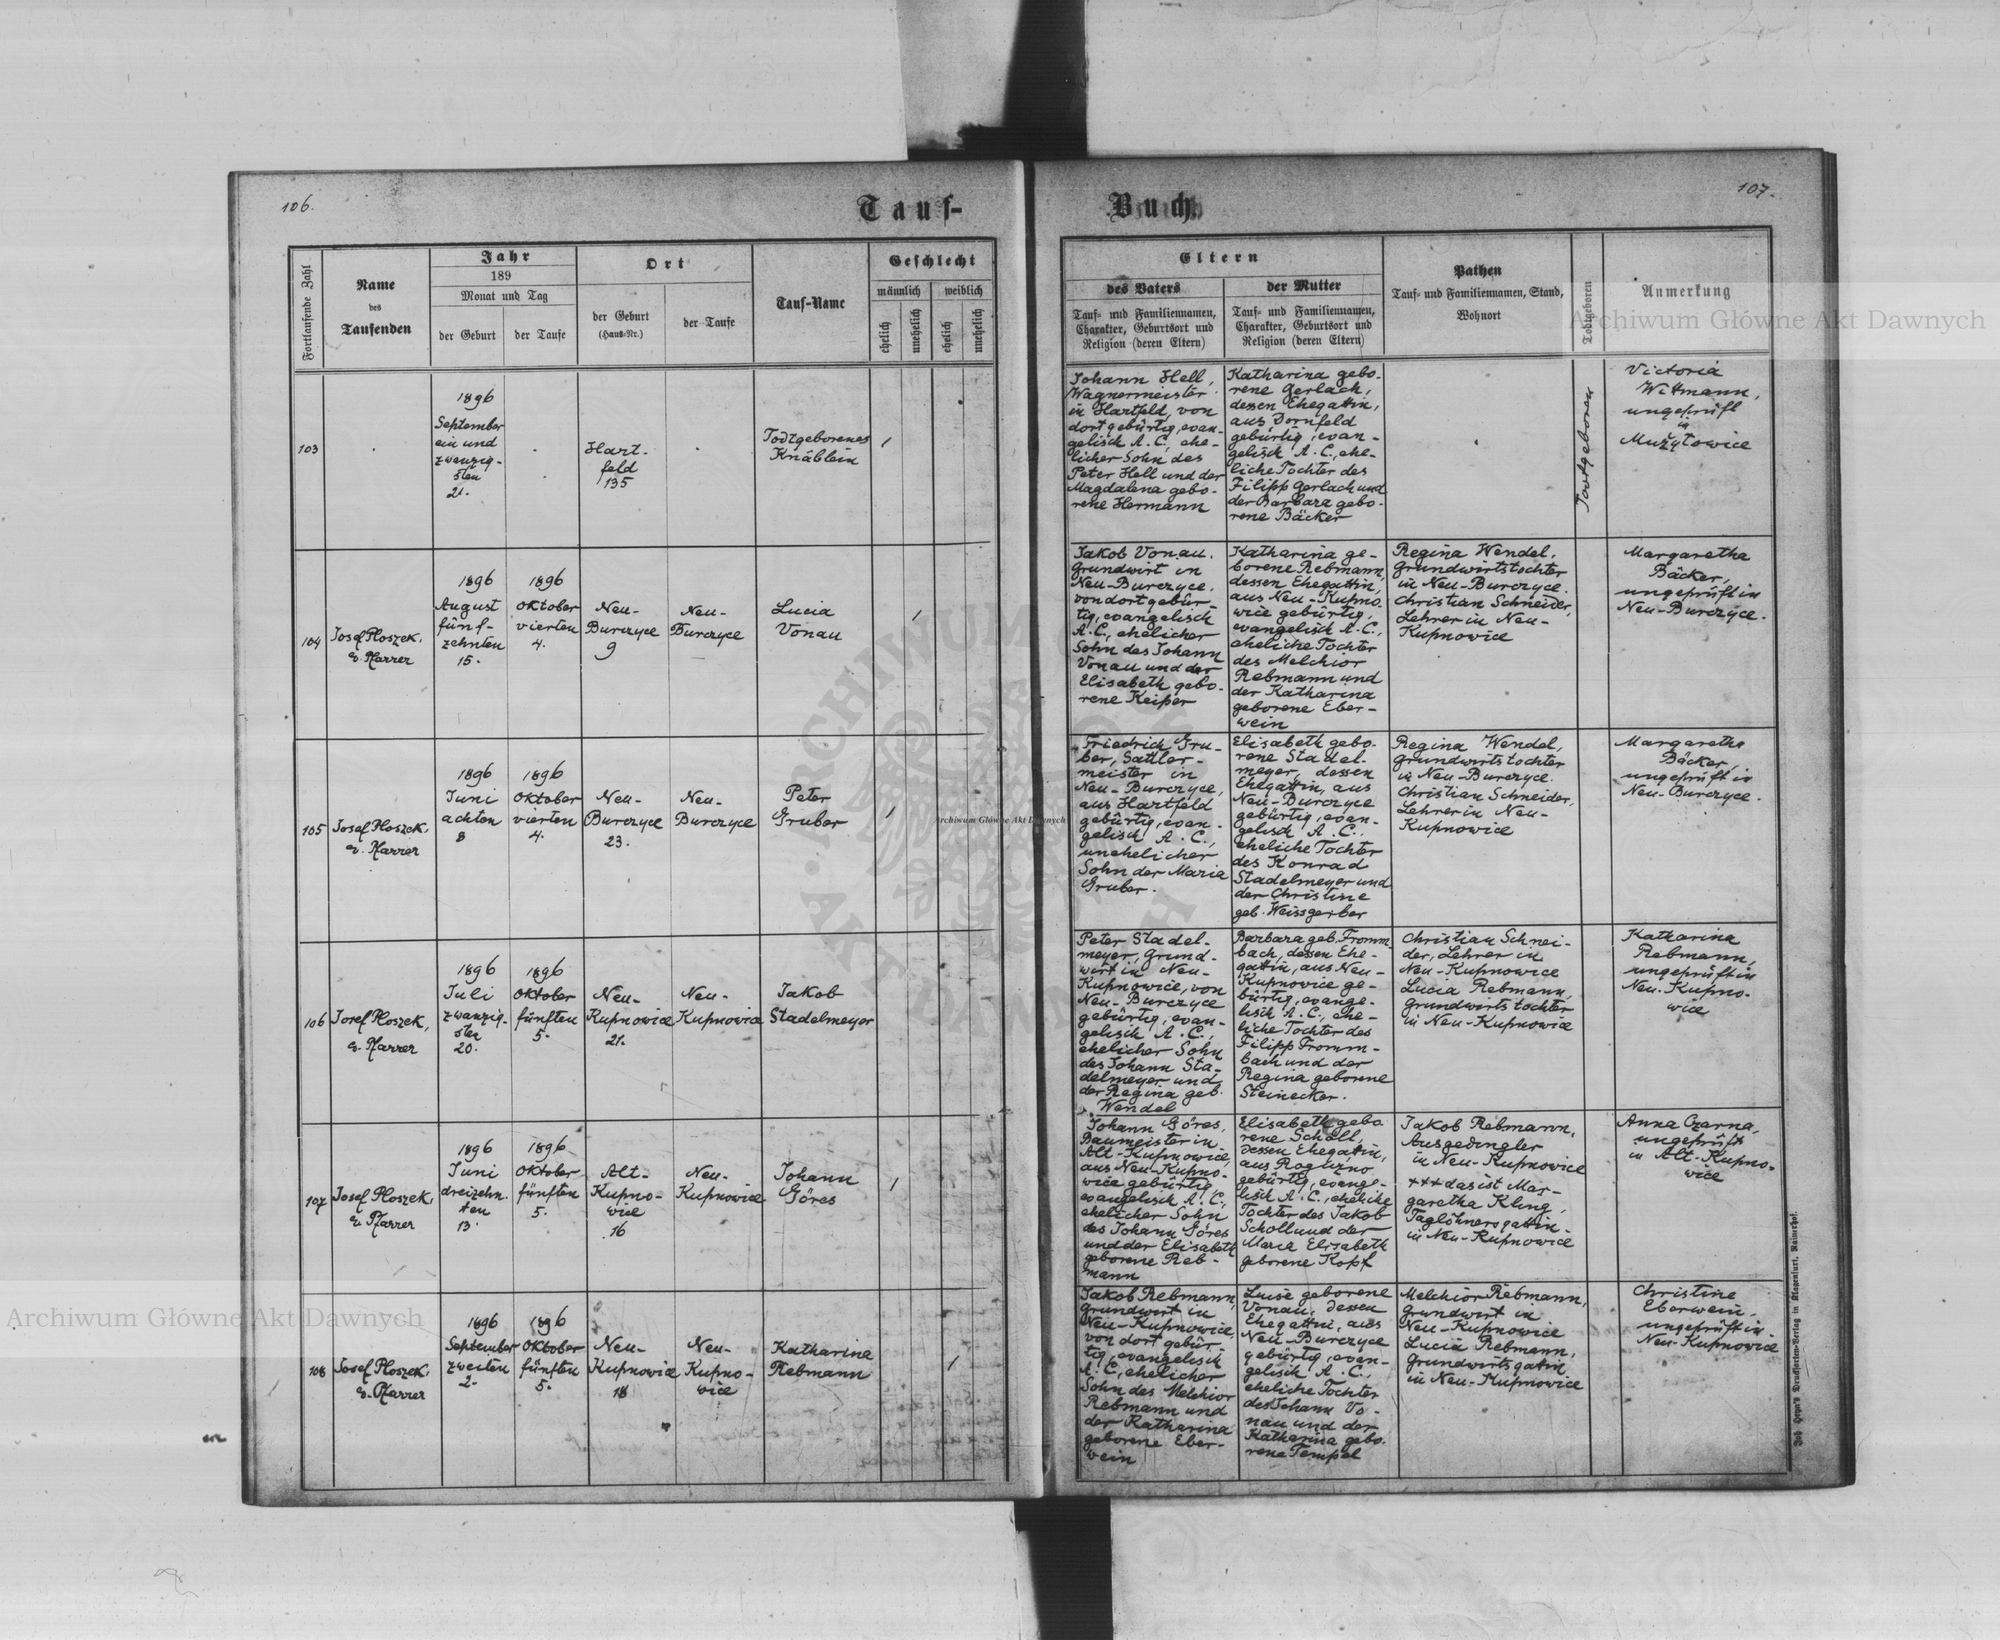 106.
Tauf-
Buch.
107.
Fortlaufende Zahl
Name
des
Taufenden
Jahr
189
Monat und Tag
der Geburt
der Taufe
Ort
der Geburt
(Haus-Nr.)
der Taufe
Tauf-Name
Geschlecht
männlich
weiblich
ehelich
unehelich
ehelich
unehelich
Eltern
des Vaters
Tauf- und Familiennamen,
Charakter, Geburtsort und
Religion (deren Eltern)
der Mutter
Tauf- und Familiennamen,
Charakter, Geburtsort und
Religion (deren Eltern)
Pathen
Tauf- und Familiennamen, Stand,
Wohnort
Todtgeboren
Anmerkung
103
1896
September
ein und
zwanzig-
sten
21.
Hart-
feld
135
Todtgeborenes
Knäblein
1
Johann Hell,
Wagnermeister
in Hartfeld, von
dort gebürtig, evan-
gelisch A. C., ehe-
licher Sohn des
Peter Hell und der
Magdalena gebo-
rene Hermann
Katharina gebo-
rene Gerlach,
dessen Ehegattin,
aus Dornfeld
gebürtig, evan-
gelisch A. C., ehe-
liche Tochter des
Filipp Gerlach und
der Barbara gebo-
rene Bäcker
Todtgeboren
Victoria
Wittmann,
ungeprüft
in
Mużyłowice
104
Josef Ploszek,
ev. Pfarrer
1896
August
fünf-
zehnten
15.
1896
Oktober
vierten
4.
Neu-
Burczyce
9
Neu-
Burczyce
Lucia
Vonau
1
Jakob Vonau,
Grundwirt in
Neu-Burczyce,
von dort gebür-
tig, evangelisch
A. C., ehelicher
Sohn des Johann
Vonau und der
Elisabeth gebo-
rene Keiper
Katharina ge-
borene Rebmann,
dessen Ehegattin,
aus Neu-Kupno-
wice gebürtig,
evangelisch A. C.,
eheliche Tochter
des Melchior
Rebmann und
der Katharina
geborene Eber-
wein
Regina Wendel,
Grundwirtstochter
in Neu-Burczyce.
Christian Schneider,
Lehrer in Neu-
Kupnowice
Margaretha
Bäcker,
ungeprüft in
Neu-Burczyce.
105
Josef Ploszek,
ev. Pfarrer
1896
Juni
achten
8
1896
Oktober
vierten
4.
Neu-
Burczyce
23.
Neu-
Burczyce
Peter
Gruber
1
Friedrich Gru-
ber, Sattler-
meister in
Neu-Burczyce,
aus Hartfeld
gebürtig, evan-
gelisch A. C.,
unehelicher
Sohn der Maria
Gruber.
Elisabeth gebo-
rene Stadel-
meyer, dessen
Ehegattin, aus
Neu-Burczyce
gebürtig, evan-
gelisch A. C.,
eheliche Tochter
des Konrad
Stadelmeyer und
der Christine
geb. Weissgerber
Regina Wendel,
Grundwirtstochter
in Neu-Burczyce.
Christian Schneider,
Lehrer in Neu-
Kupnowice
Margaretha
Bäcker
ungeprüft in
Neu-Burczyce.
106
Josef Ploszek,
ev. Pfarrer
1896
Juli
zwanzig-
sten
20.
1896
Oktober
fünften
5.
Neu-
Kupnowice
21.
Neu-
Kupnowice
Jakob
Stadelmeyer
Peter Stadel-
meyer, Grund-
wirt in Neu-
Kupnowice, von
Neu-Burczyce
gebürtig, evan-
gelisch A. C.,
ehelicher Sohn
des Johann Sta-
delmeyer und
der Regina geb.
Wendel
Barbara geb. Fromm-
bach, dessen Ehe-
gattin, aus Neu-
Kupnowice ge-
bürtig, evange-
lisch A. C., ehe-
liche Tochter des
Filipp Fromm-
bach und der
Regina geborene
Steinecker.
Christian Schnei-
der, Lehrer in
Neu-Kupnowice
Lucia Rebmann,
Grundwirtstochter
in Neu-Kupnowice
Katharina
Rebmann,
ungeprüft in
Neu-Kupno-
wice
107
Josef Ploszek,
ev. Pfarrer
1896
Juni
dreizehn-
ten
13.
1896
Oktober
fünften
5.
Alt-
Kupno-
wice
16
Neu-
Kupnowice
Johann
Göres
1
Johann Göres,
Baumeister in
Alt-Kupnowice,
aus Neu-Kupno-
wice gebürtig,
evangelisch A. C.,
ehelicher Sohn
des Johann Göres
und der Elisabeth
geborene Reb-
mann
Elisabeth gebo-
rene Scholl,
dessen Ehegattin,
aus Roguzno
gebürtig, evange-
lisch A. C., eheliche
Tochter des Jakob
Scholl und der
Maria Elisabeth
geborene Kopf
Jakob Rebmann,
Ausgedingler
in Neu-Kupnowice
+++ das ist Mar-
garetha Kling,
Taglöhnersgattin-
in Neu-Kupnowice
Anna Czarna,
ungeprüft
in Alt-Kupno-
wice
108
Josef Ploszek,
ev. Pfarrer
1896
September
zweiten
2.
1896
Oktober
fünften
5.
Neu-
Kupnowice
18
Neu-
Kupno-
wice
Katharina
Rebmann
1
Jakob Rebmann,
Grundwirt in
Neu-Kupnowice,
von dort gebür-
tig, evangelisch
A. C., ehelicher
Sohn des Melchior
Rebmann und
der Katharina
geborene Eber-
wein
Luise geborene
Vonau, dessen
Ehegattin, aus
Neu-Burczyce
gebürtig, evan-
gelisch A. C.,
eheliche Tochter
des Johann Vo-
nau und der
Katharina gebo-
rene Tempel
Melchior Rebmann,
Grundwirt in
Neu-Kupnowice
Lucia Rebmann,
Grundwirtsgattin
in Neu-Kupnowice
Christine
Eberwein,
ungeprüft in
Neu-Kupnowice
Joh. Heyn's Druckforten-Verlag in Klagenfurt, Rainerhof.
Archiwum Główne Akt Dawnych
Archiwum Główne Akt Dawnych
Archiwum Główne Akt Dawnych